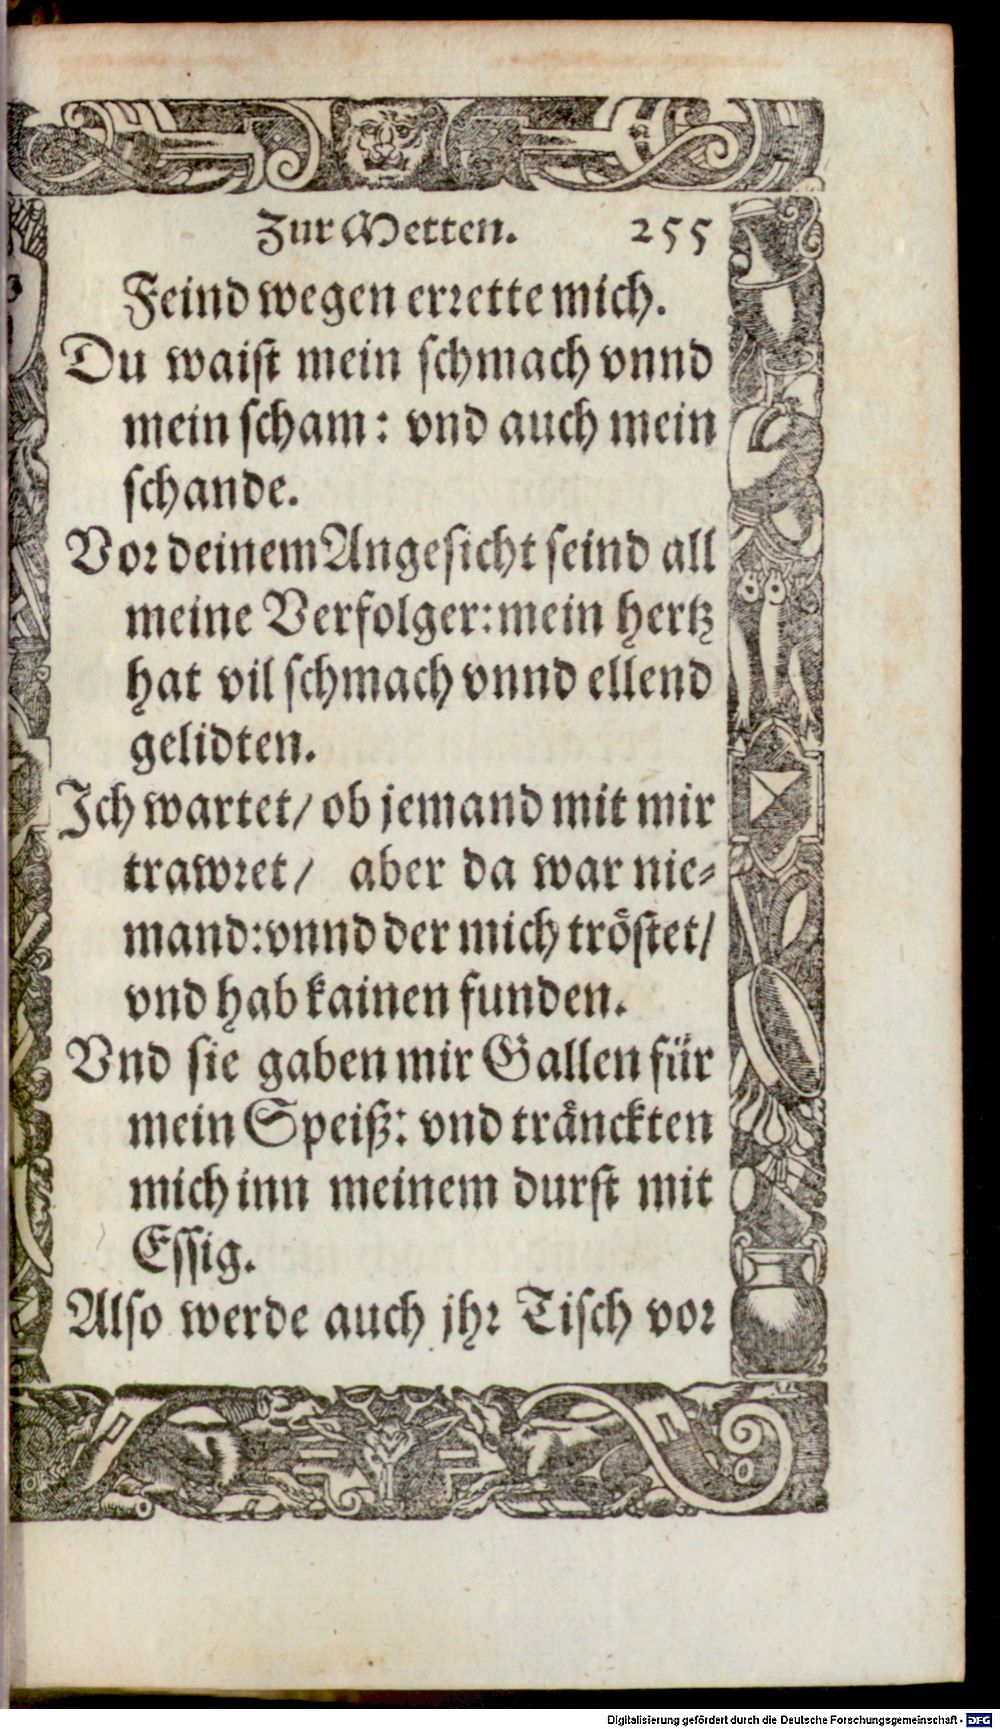 Zur Metten. 255
Feind wegen errette mich.
Du waist mein schmach vnnd
mein scham: vnd auch mein
schande.
Vor deinem Angesicht seind all
meine Verfolger: mein hertz
hat vil schmach vnnd ellend
gelidten.
Ich wartet/ ob jemand mit mir
trawret/ aber da war nie-
mand: vnnd der mich tröstet/
vnd hab kainen funden.
Vnd sie gaben mir Gallen für
mein Speiß: vnd tränckten
mich inn meinem durst mit
Essig.
Also werde auch jhr Tisch vor
Digitalisierung gefördert durch die Deutsche Forschungsgemeinschaft - DFG